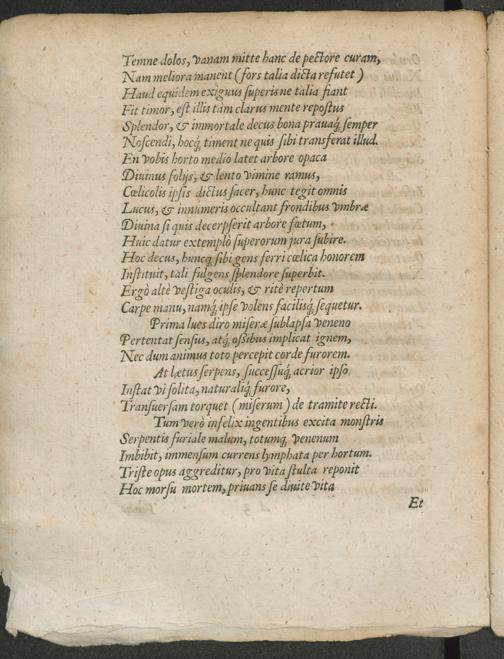 Temne dolos, vanam mitte hanc de pectore curam,
Nam meliora manent (fors talia dicta refutet)
Haud equidem exiguus superis ne talia fiant
Fit timor, est illis tàm clarus mente repostus
Splendor, & immortale decus bona prauaq́; semper
Noscendi, hocq́; timent ne quis sibi transferat illud.
En vobis horto medio latet arbore opaca
Diuinus folijs, & lento vimine ramus,
Cœlicolis ipsis dictus sacer, hunc tegit omnis
Lucus, & innumeris occultant frondibus vmbræ
Diuina si quis decerpserit arbore fœtum,
Huic datur extemplò superorum jura subire.
Hoc decus, huncq́; sibi gens ferri cœlica honorem
Instituit, tali fulgens splendore superbit.
Ergò altè vestiga oculis, & ritè repertum
Carpe manu, namq́; ipse volens facilisq́; sequetur.
Prima lues diro miseræ sublapsa veneno
Pertentat sensus, atq́; ossibus implicat ignem,
Nec dum animus toto percepit corde furorem.
At lætus serpens, successuq́; acrior ipso
Instat vi solita, naturaliq́; furore,
Transuersam torquet (miserum) de tramite recti.
Tum verò infelix ingentibus excita monstris
Serpentis furiale malum, totumq́; venenum
Imbibit, immensum currens lymphata per hortum.
Triste opus aggreditur, pro vita stulta reponit
Hoc morsu mortem, priuans se diuite vita
Et